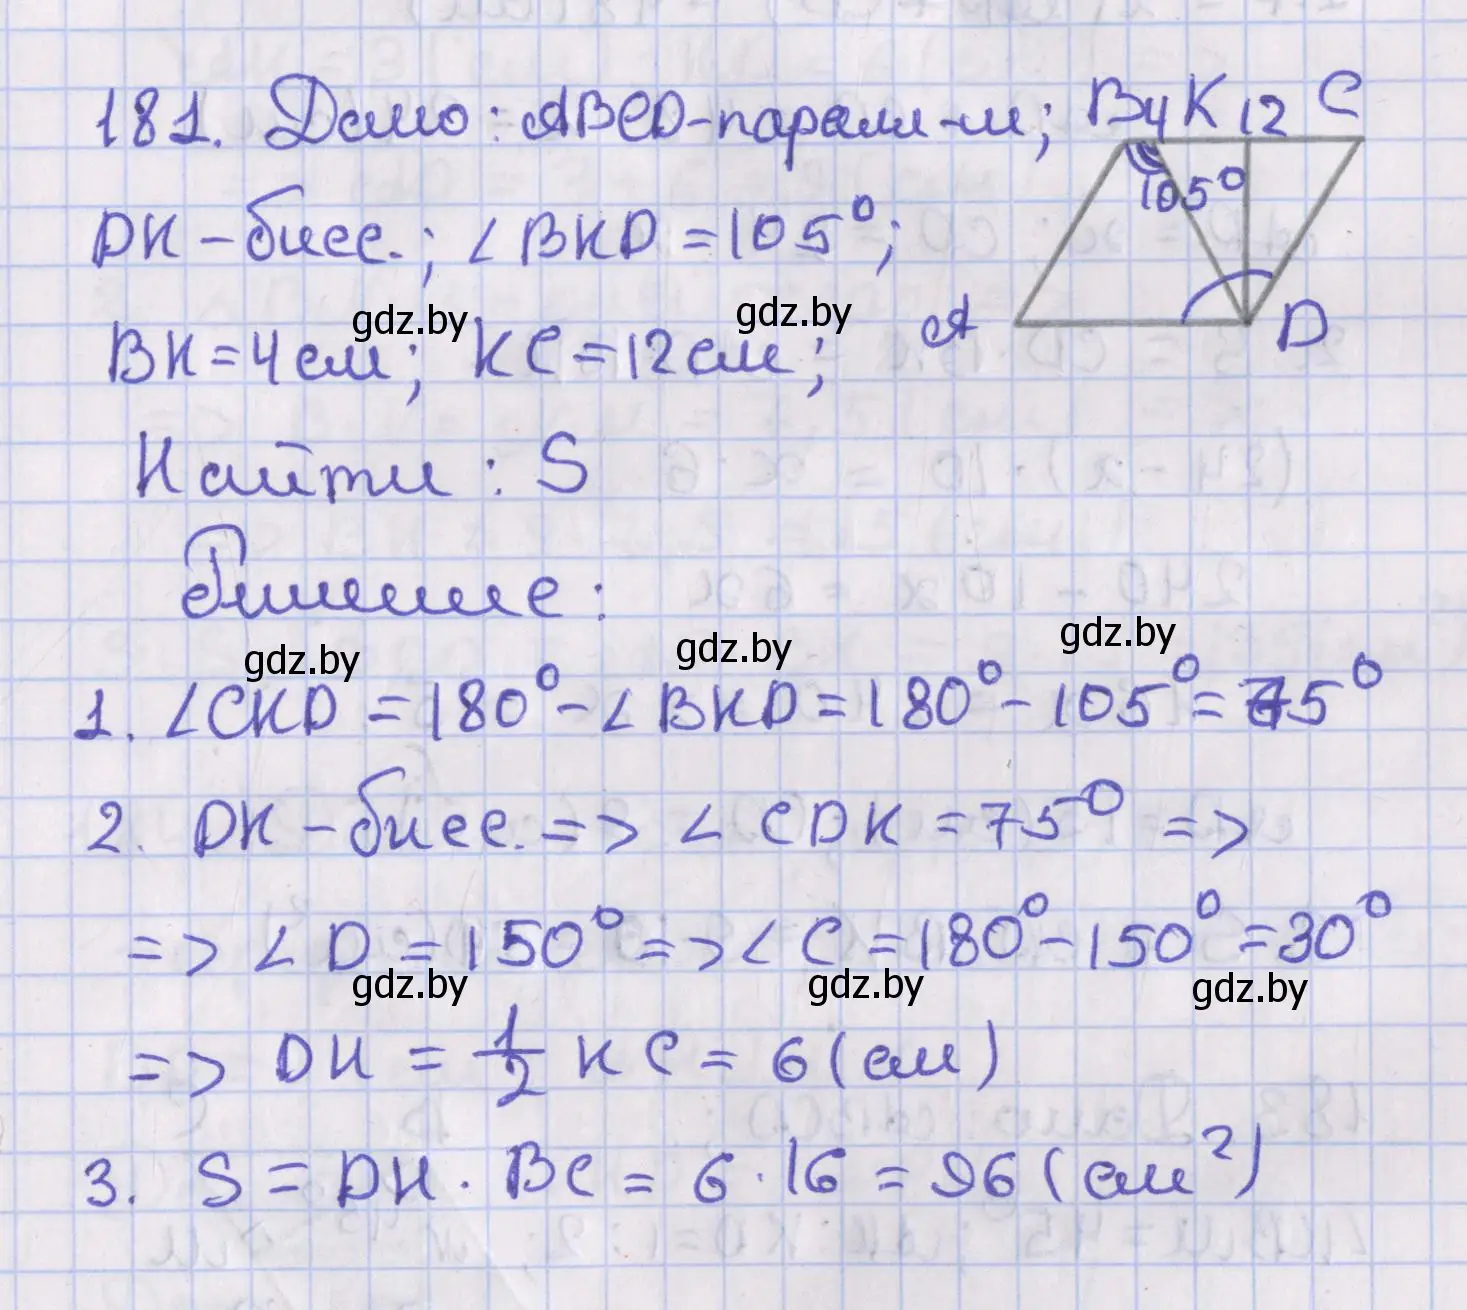 181. Дано: ABCD-паралл-м; B 4 K 12 C
105°
DK - бисс.; ∠BKD = 105°;
gdz.by gdz.by
A D
BK = 4 см; KC = 12 см;
Найти: S
Решение:
gdz.by gdz.by gdz.by
1. ∠CKD = 180° - ∠BKD = 180° - 105° = 75°
2. DK - бисс. => ∠CDK = 75° =>
=> ∠D = 150° => ∠C = 180° - 150° = 30°
gdz.by gdz.by gdz.by
=> DH = 1/2 KC = 6 (см)
3. S = DH · BC = 6 · 16 = 96 (см²)